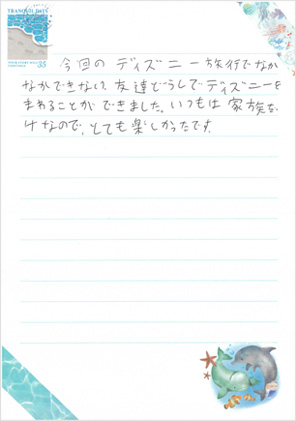 TRANQUIL DAYS
55
今回のディズニー旅行でなか
なかできない、友達どうしでディズニーを
まわることができました。いつもは家族だ
けなので、とても楽しかったです。